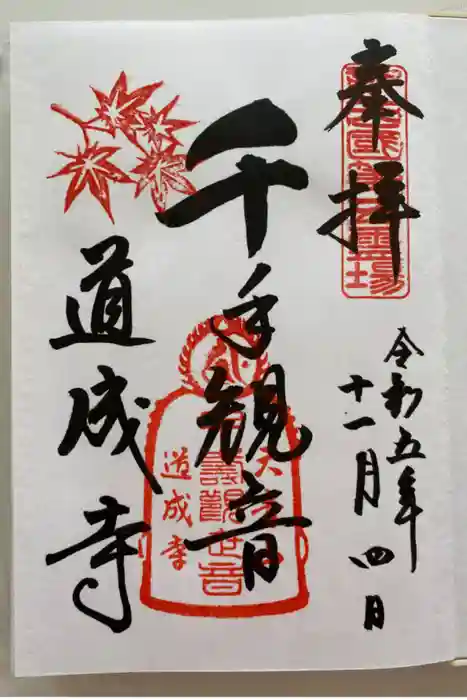 奉拝
令和五年
十一月四日
千手観音
道成寺
道成寺